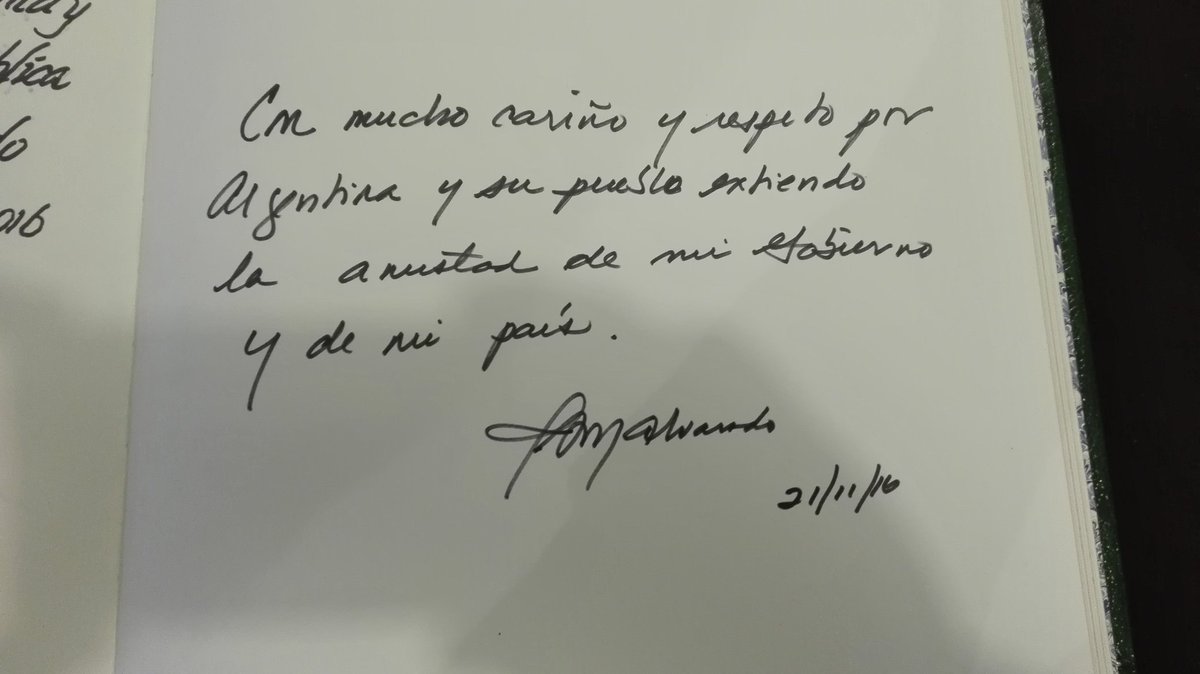 ay
blica
do
016
Con mucho cariño y respeto por
Argentina y su pueblo extiendo
la amistad de mi Gobierno
y de mi país.
Alvarado
21/11/16